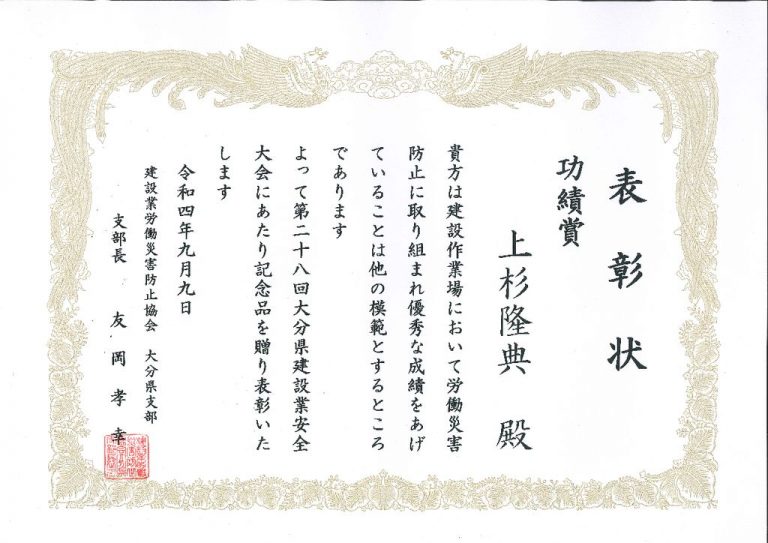 表彰状
功績賞
上杉隆典 殿
貴方は建設作業場において労働災害
防止に取り組まれ優秀な成績をあげ
ていることは他の模範とするところ
であります
よって第二十八回大分県建設業安全
大会にあたり記念品を贈り表彰いた
します
令和四年九月九日
建設業労働災害防止協会 大分県支部
支部長 友岡孝幸